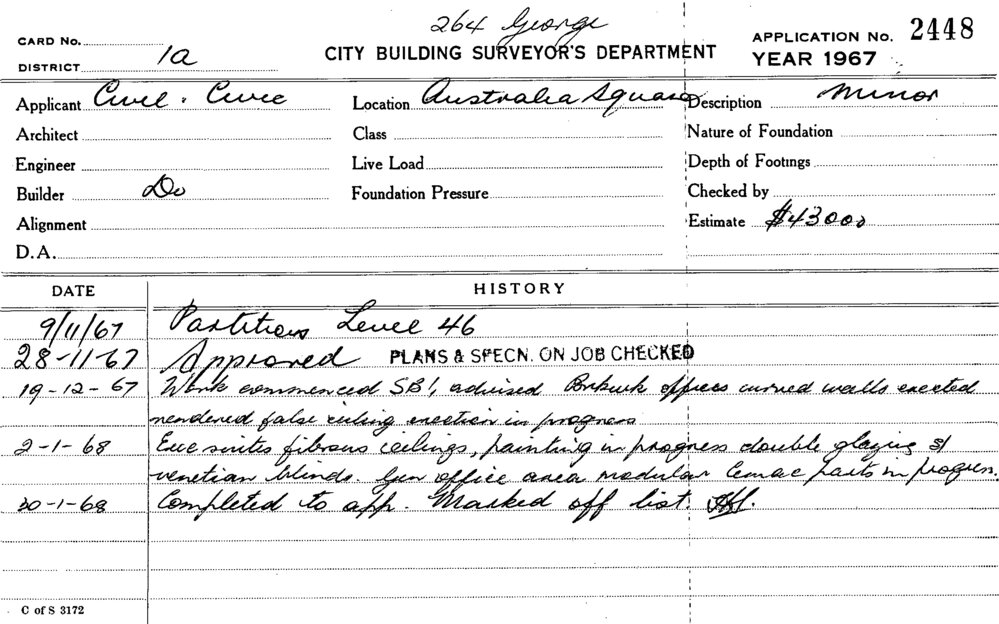 264 George
CARD No.
CITY BUILDING SURVEYOR'S DEPARTMENT
APPLICATION No. 2448
DISTRICT 1a
YEAR 1967
Applicant Civil & Civic
Location Australia Square
Description Minor
Architect
Class
Nature of Foundation
Engineer
Live Load
Depth of Footings
Builder Do
Foundation Pressure
Checked by
Alignment
Estimate $43000
D.A.
DATE HISTORY
9/11/67 Partitions Level 46
28-11-67 Approved PLANS & SPECN. ON JOB CHECKED
19-12-67 Work commenced SB1, advised Brickwk offices curved walls erected
rendered false ceiling erection in progress
2-1-68 Exec suites fibrous ceilings, painting in progress double glazing &
venetian blinds. Gen office area modular Cemac parts in progress.
30-1-68 Completed to app. Marked off list.
C of S 3172